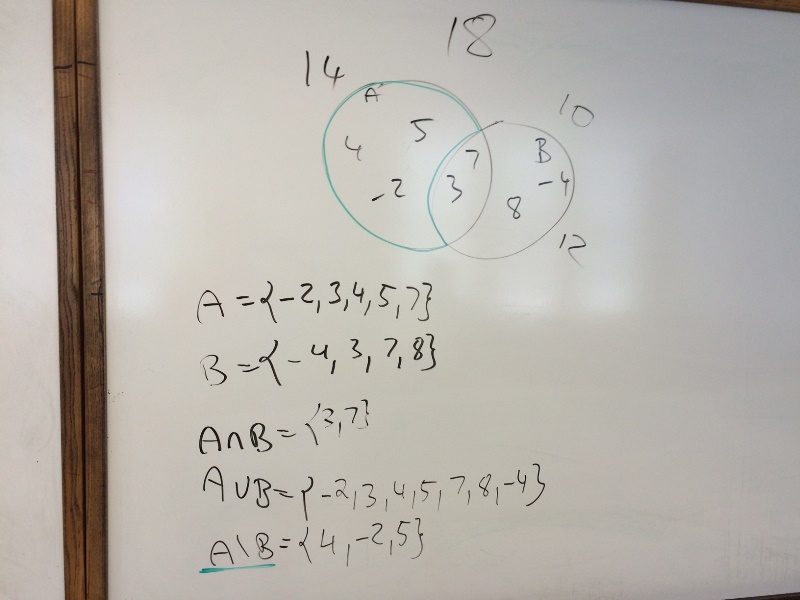 18
14
A
10
4 5 7 B
-2 3 8 -4
12
A = {-2, 3, 4, 5, 7}
B = {-4, 3, 7, 8}
A∩B = {3, 7}
A∪B = {-2, 3, 4, 5, 7, 8, -4}
A\B = {4, -2, 5}